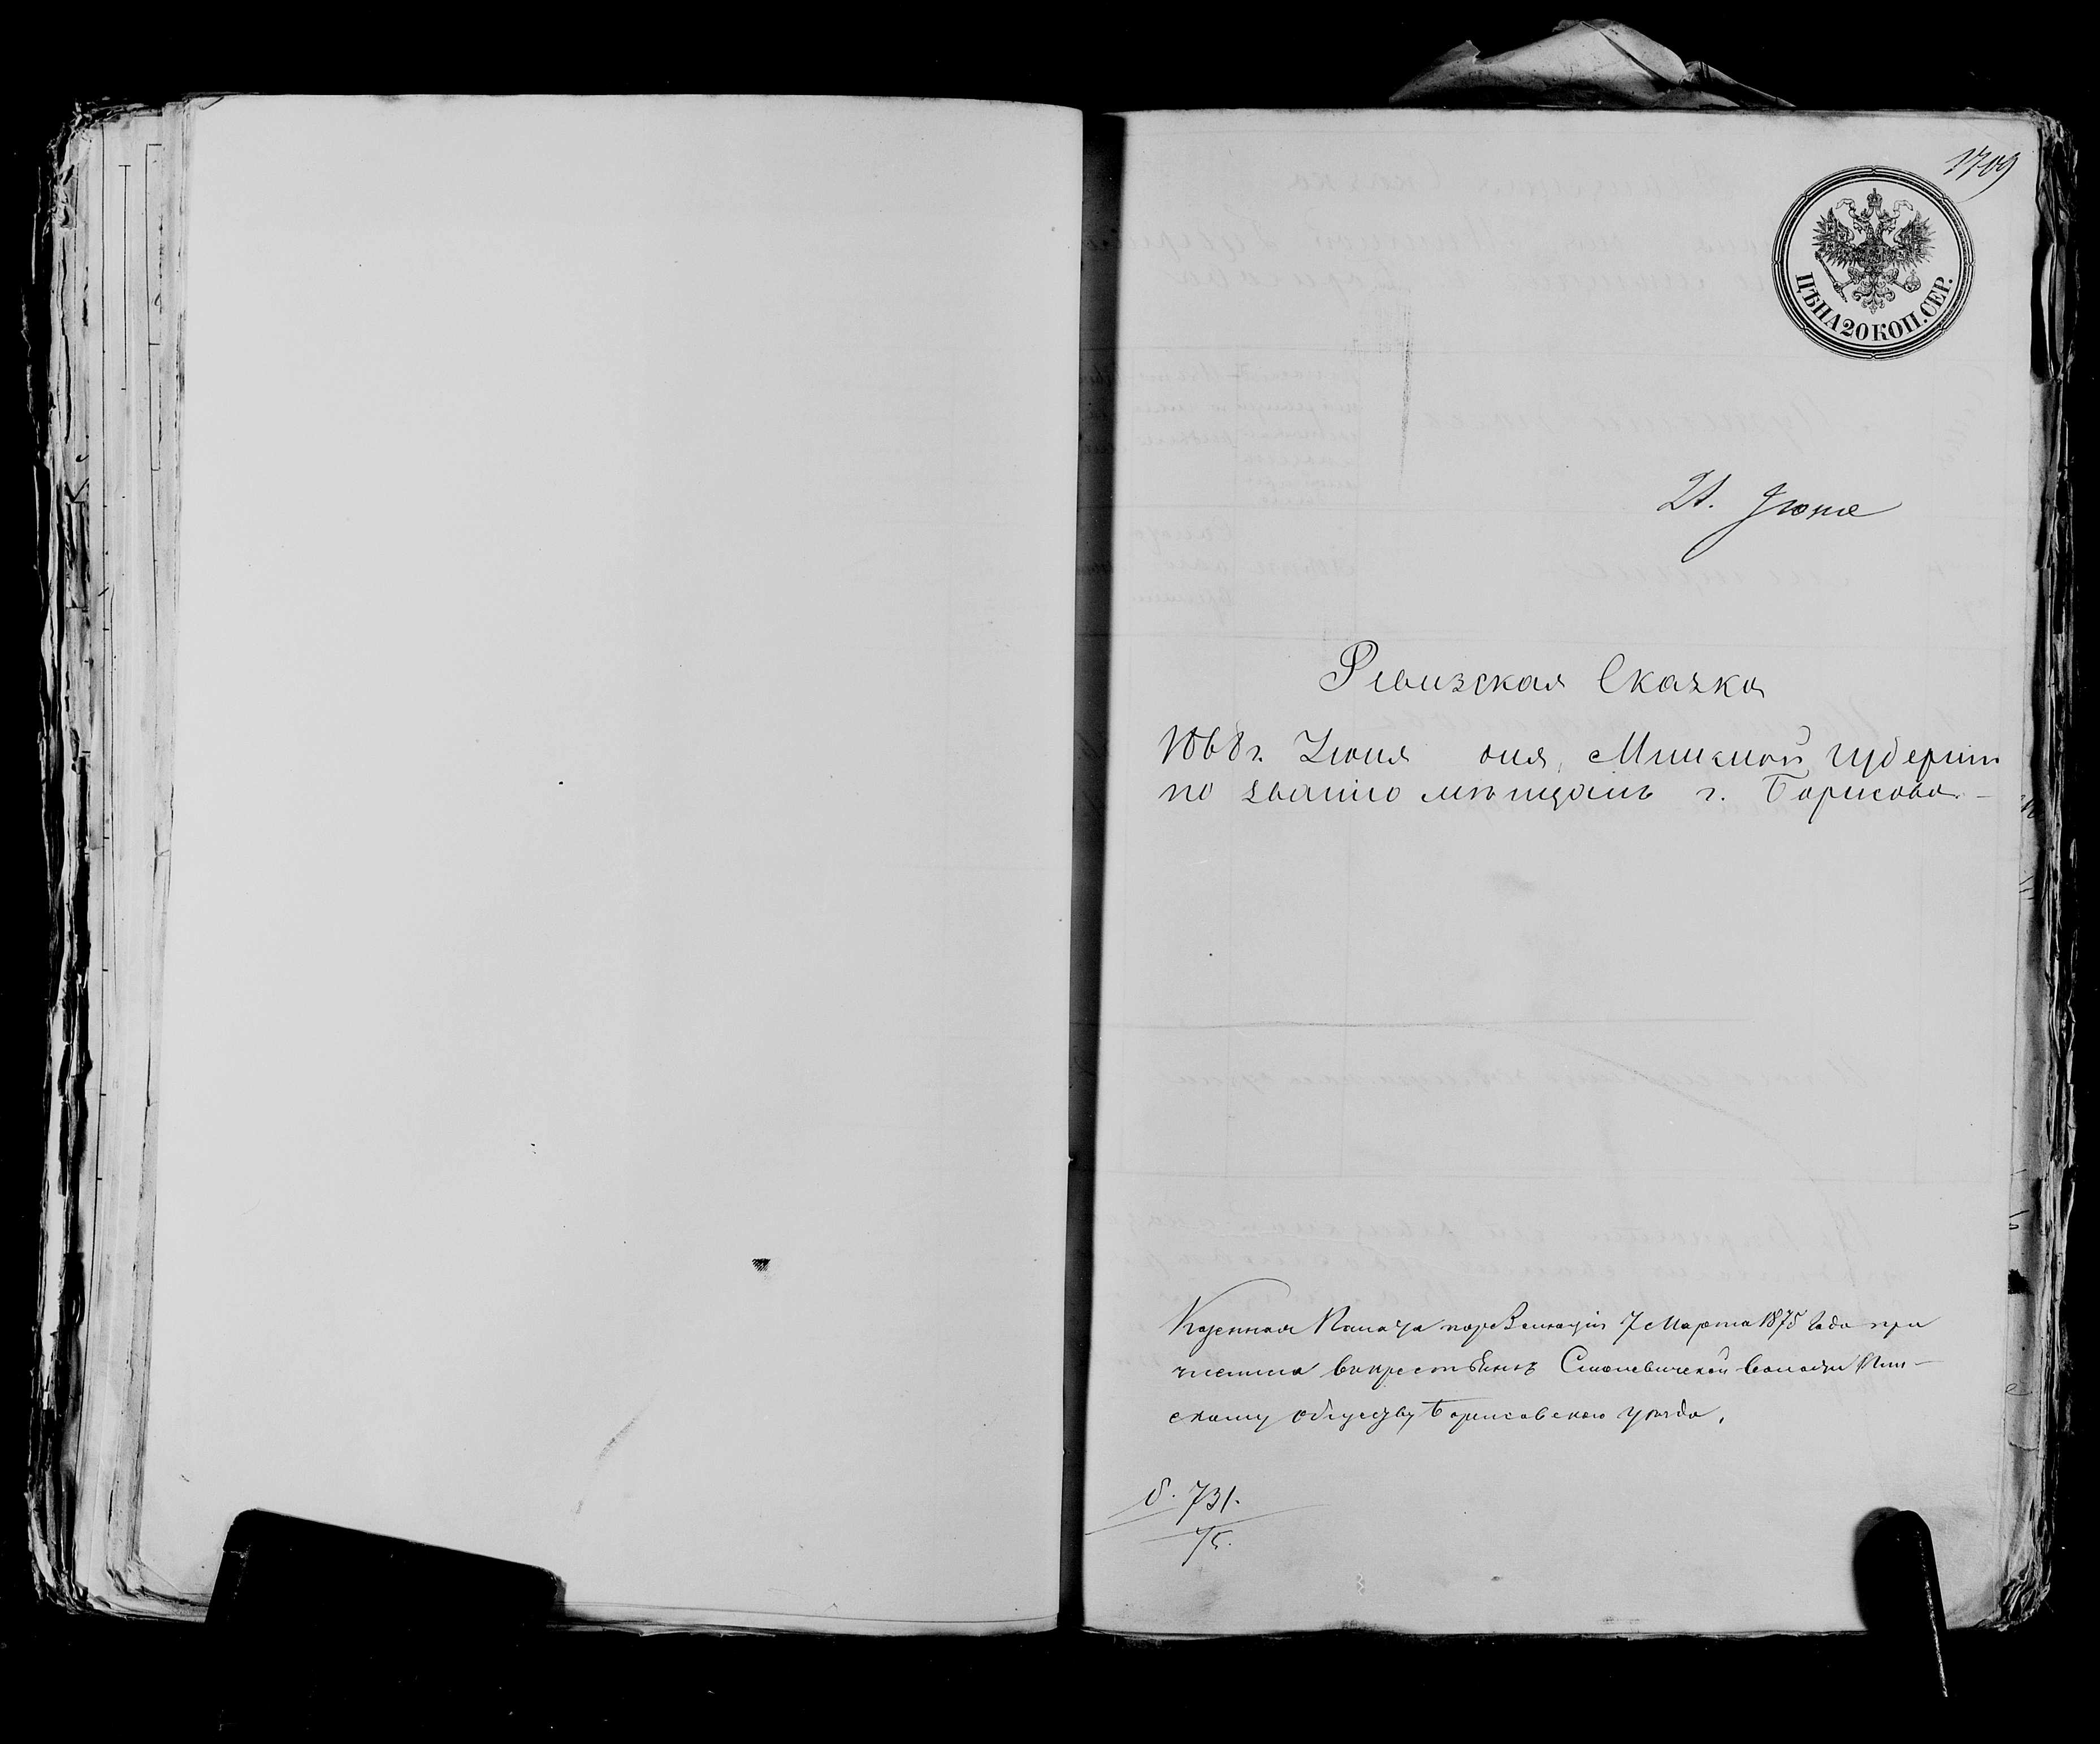 1709
ЦѢНА 20 КОП. СЕР.
21. Июня
Ревизская Сказка
1868 г. Июня дня, Минской Губерніи
по званію мѣщанъ г. Борисова.
Казенная Палата по резолюціи 7 Марта 1875 года при
числила въ крестьяне Смолевичской волости
скому обществу Борисовскаго уѣзда.
б. 731.
75.